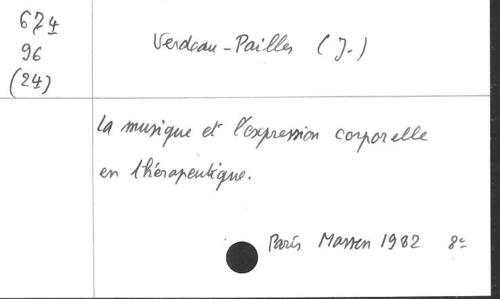 674
96
(24)
Verdeau-Pailles (J.)
La musique et l'expression corporelle
en thérapeutique.
Paris Masson 1982 8°